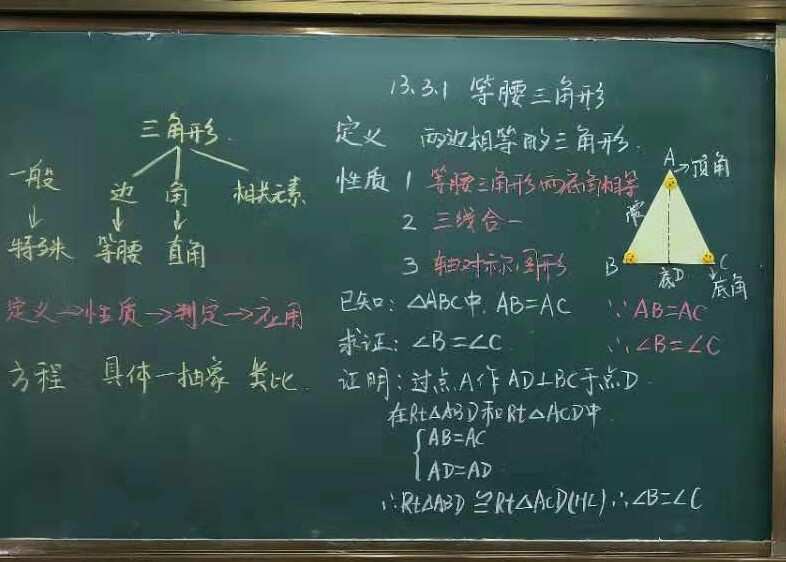 13.3.1 等腰三角形
三角形
一般 边 角 相关元素
特殊 等腰 直角
定义→性质→判定→应用
方程 具体一抽象 类比
定义 两边相等的三角形.
性质 1 等腰三角形两底角相等
2 三线合一
3 轴对称图形
A→顶角
腰
B 底D C
底角
已知: △ABC中, AB=AC
求证: ∠B=∠C
证明: 过点A作AD⊥BC于点D
在Rt△ABD和Rt△ACD中
AB=AC
AD=AD
∴Rt△ABD≌Rt△ACD(HL) ∴∠B=∠C
∵AB=AC
∴∠B=∠C